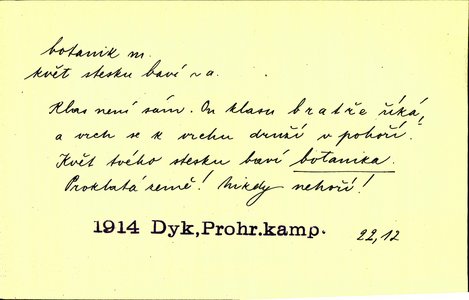 botanik m.
květ stesku baví ~a.
Klas není sám. On klasu bratře říká,
a vrch se k vrchu druží v pohoří.
Květ tvého stesku baví botanika.
Prokletá země! Nikdy nehoří!
1914 Dyk,Prohr.kamp. 22,12